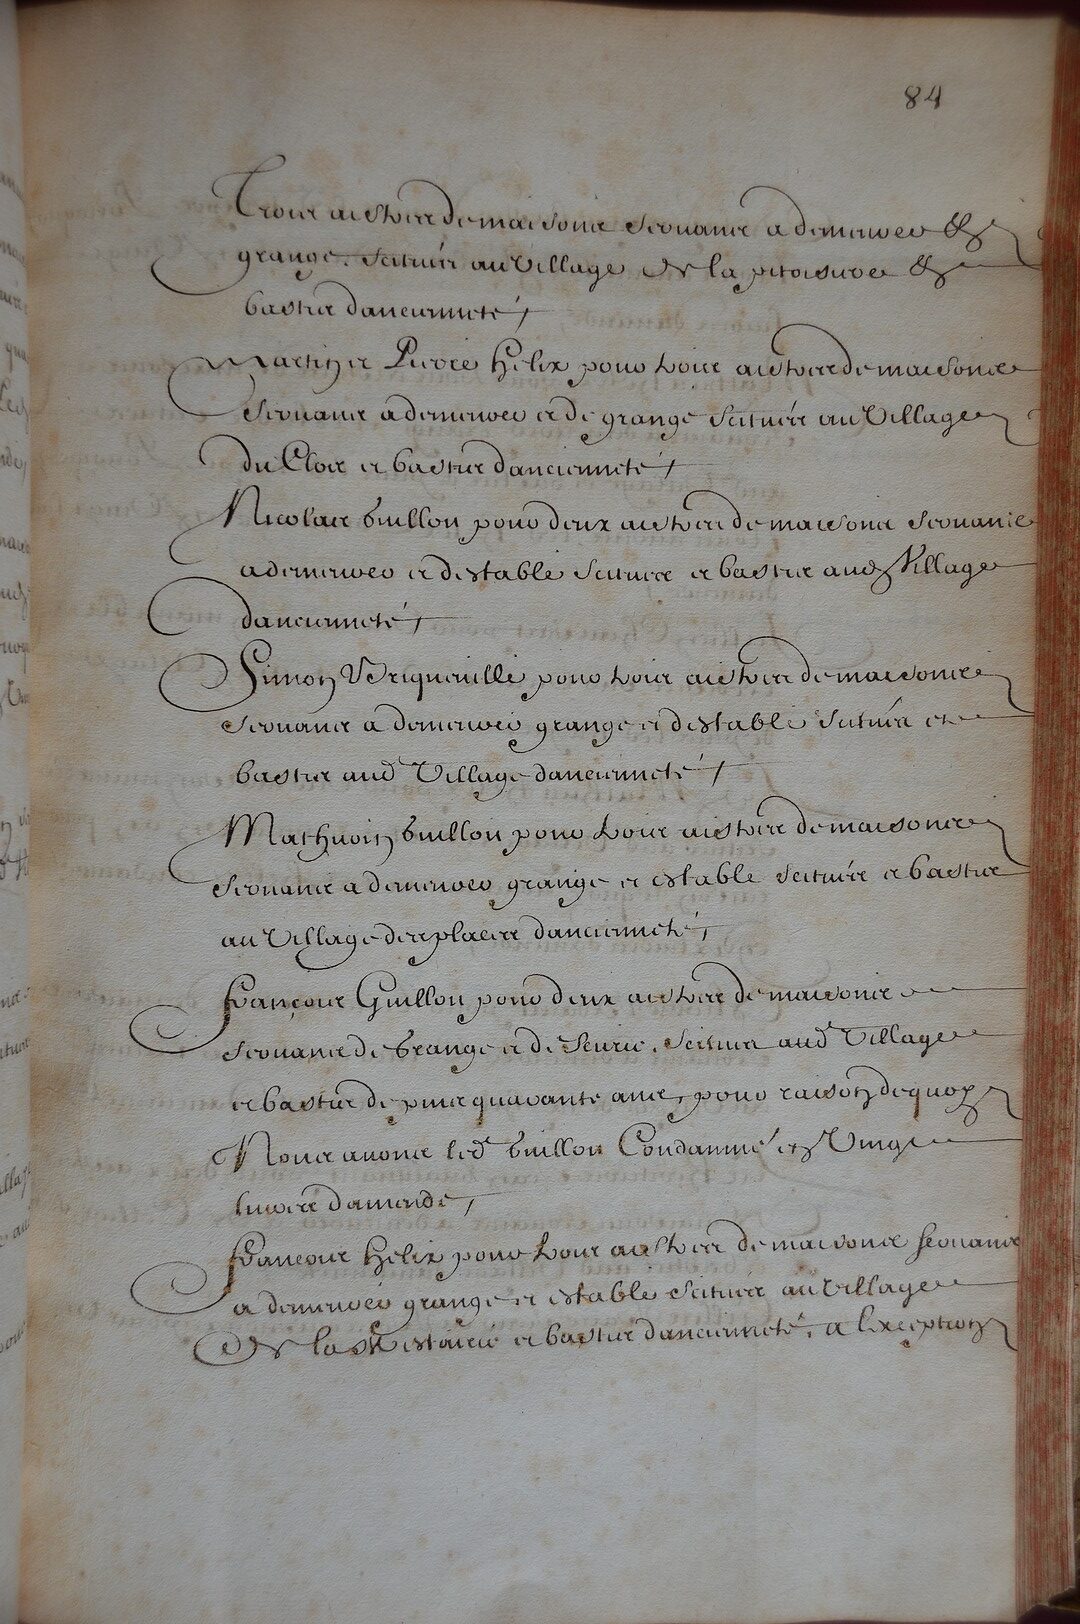 84
Trois aistres de maisons servans a demeurer &
grange scituéz au village de la &
bastis d'ancienneté,
Martin et Pierre Helix pour trois aistres de maisons
servans a demeurer et de grange scituéz au village
du Clos et bastis d'ancienneté,
Nicolas Guillon pour deux aistres de maisons servans
a demeurer et d'estable scituez et bastis aud village
d'ancienneté,
Simon pour trois aistres de maisons
servans a demeurer grange et d'estable scituéz et
bastis aud village d'ancienneté,
Mathurin Guillon pour trois aistres de maisons
servans a demeurer grange et estable scituéz et bastis
au village des places d'ancienneté,
François Guillon pour deux aistres de maisons
servans de Grange et de scituez aud village
et bastis depuis quarante ans, pour raison de quoy
Nous avons led Guillon Condamné en Vingt
livres d'amende,
François Helix pour trois aistres de maisons servans
a demeurer grange et estable scituéz au village
de la et bastis d'ancienneté, a l'exception